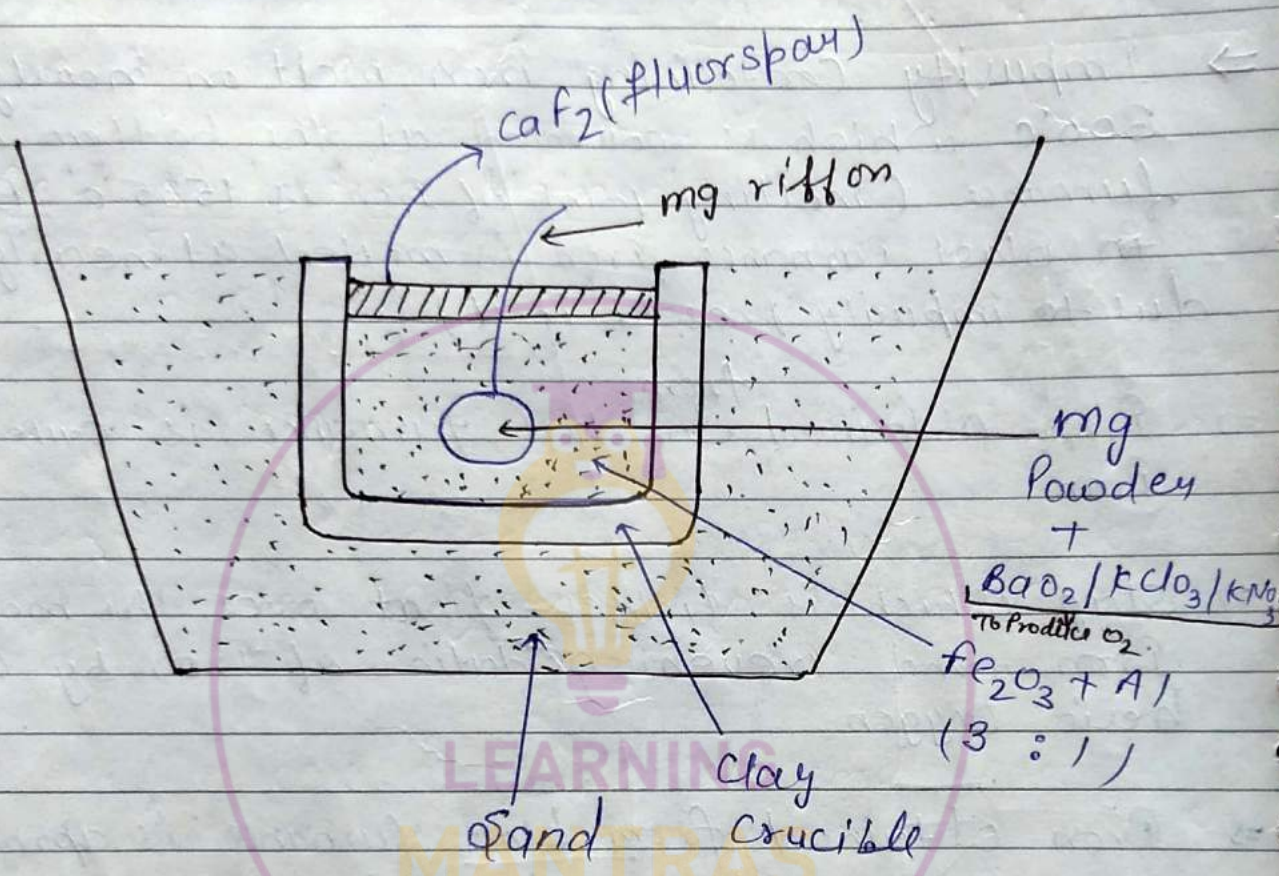 CaF2 (fluorspar)
mg riffon
mg
Powder
+
BaO2/KClO3/KNO3
To Produce O2
Fe2O3 + Al
(3 : 1)
Clay
Crucible
Sand
LEARNING
MANTRAS